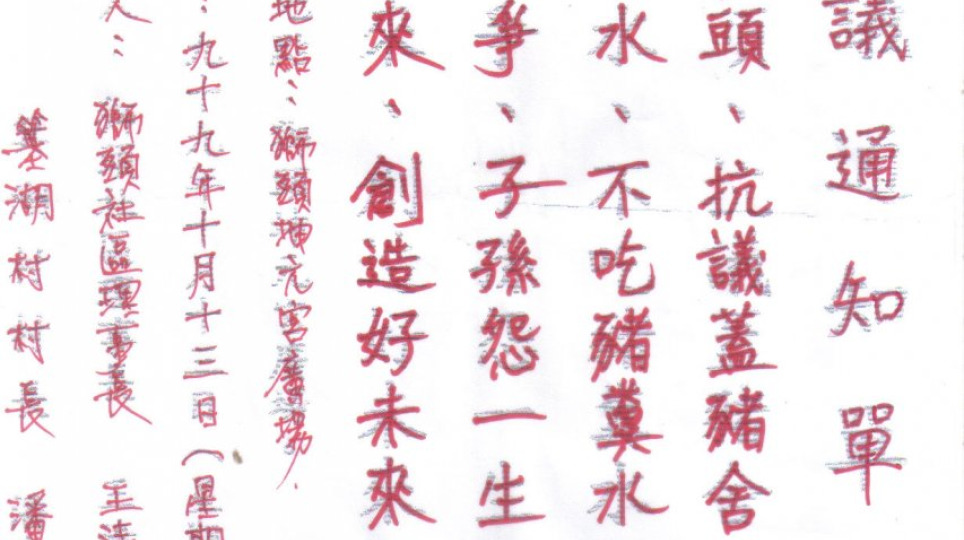 議通知單
頭、抗議蓋豬舍
水、不吃豬糞水
爭、子孫怨一生
來、創造好未來
地點：獅頭坤元宮廣場.
：九十九年十月十三日（星期
人：獅頭社區理事長 王
湖村村長 潘